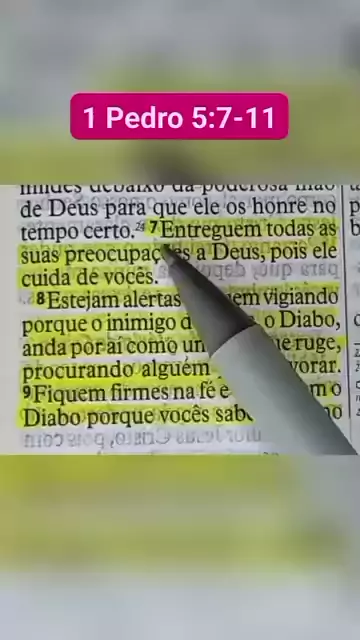 1 Pedro 5:7-11
de Deus para que ele os honre no
tempo certo. 7 Entreguem todas as
suas preocupações a Deus, pois ele
cuida de vocês.
8 Estejam alertas em vigiando
porque o inimigo d o Diabo,
anda por aí como um ue ruge,
procurando alguém vorar.
9 Fiquem firmes na fé e m o
Diabo porque vocês sab no